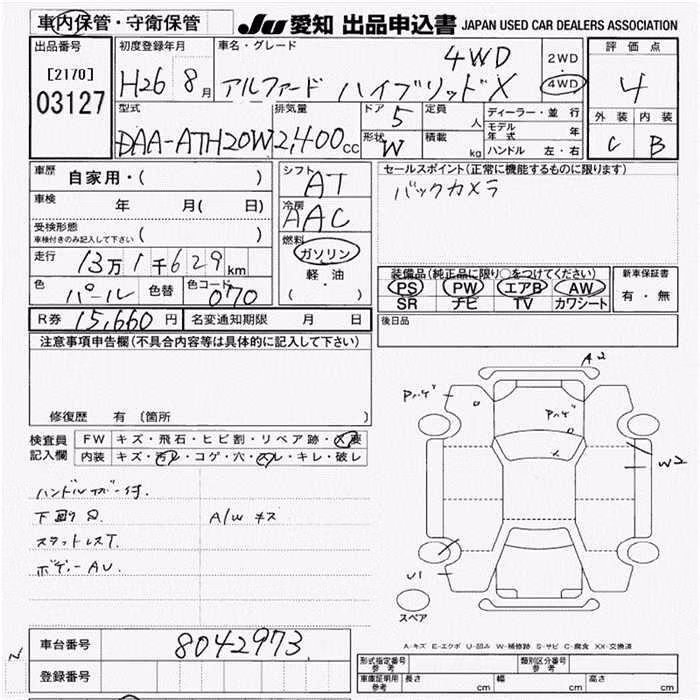 車内保管・守衛保管
JU 愛知 出品申込書 JAPAN USED CAR DEALERS ASSOCIATION
出品番号
[2170]
03127
初度登録年月
H26 8月
車名・グレード
4WD
アルファード ハイブリッドX
2WD
・
4WD
評価点
4
外装 内装
C B
型式
DAA-ATH20W
排気量
2,400cc
ドア 5
形状 W
定員 人
積載 kg
ディーラー・並行
モデル年式 年
ハンドル 左・右
車歴 自家用・( )
車検 年 月( 日)
受検形態
車検付きのみ記入して下さい ( )
走行 13万1千629km
色 パール 色替 色コード 070
シフト
AT
冷房
AAC
燃料
ガソリン
軽・油
( ・ )
セールスポイント(正常に機能するものに限ります)
バックカメラ
装備品(純正品に限り○をつけてください)
PS PW エアB AW
SR ナビ TV カワシート
新車保証書
有・無
R券 15,660円 名変通知期限 月 日
後日品
注意事項申告欄(不具合内容等は具体的に記入して下さい)
修復歴 有 (箇所 )
検査員記入欄
FW キズ・飛石・ヒビ割・リペア跡・X要
内装 キズ・汚レ・コゲ・穴・スレ・キレ・破レ
下回り
A/W キズ
スタットレスT.
ボデーAU.
A2
Pハゲ
Pハゲ
W2
U1
スペア
A-キズ E-エクボ U-凹み W-補修跡 S-サビ C-腐食 XX-交換済
車台番号 8042973
登録番号
形式指定番号 参考
類別区分番号 参考
車庫証明用 参考 長さ cm 幅 cm 高さ cm